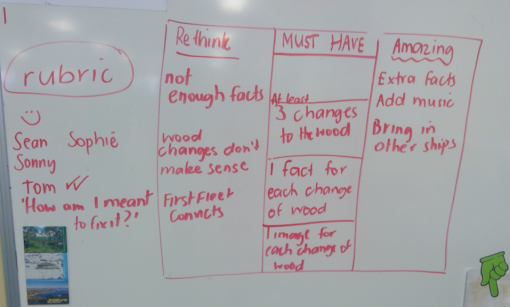 rubric
Sean Sophie
Sonny
Tom
"How am I meant
to fix it?"
Rethink
not
enough facts
wood
changes don't
make sense
First Fleet
Convicts
MUST HAVE
At least
3 changes
to the wood
1 fact for
each change
of wood
1 image for
each change of
wood
Amazing
Extra facts
Add music
Bring in
other ships